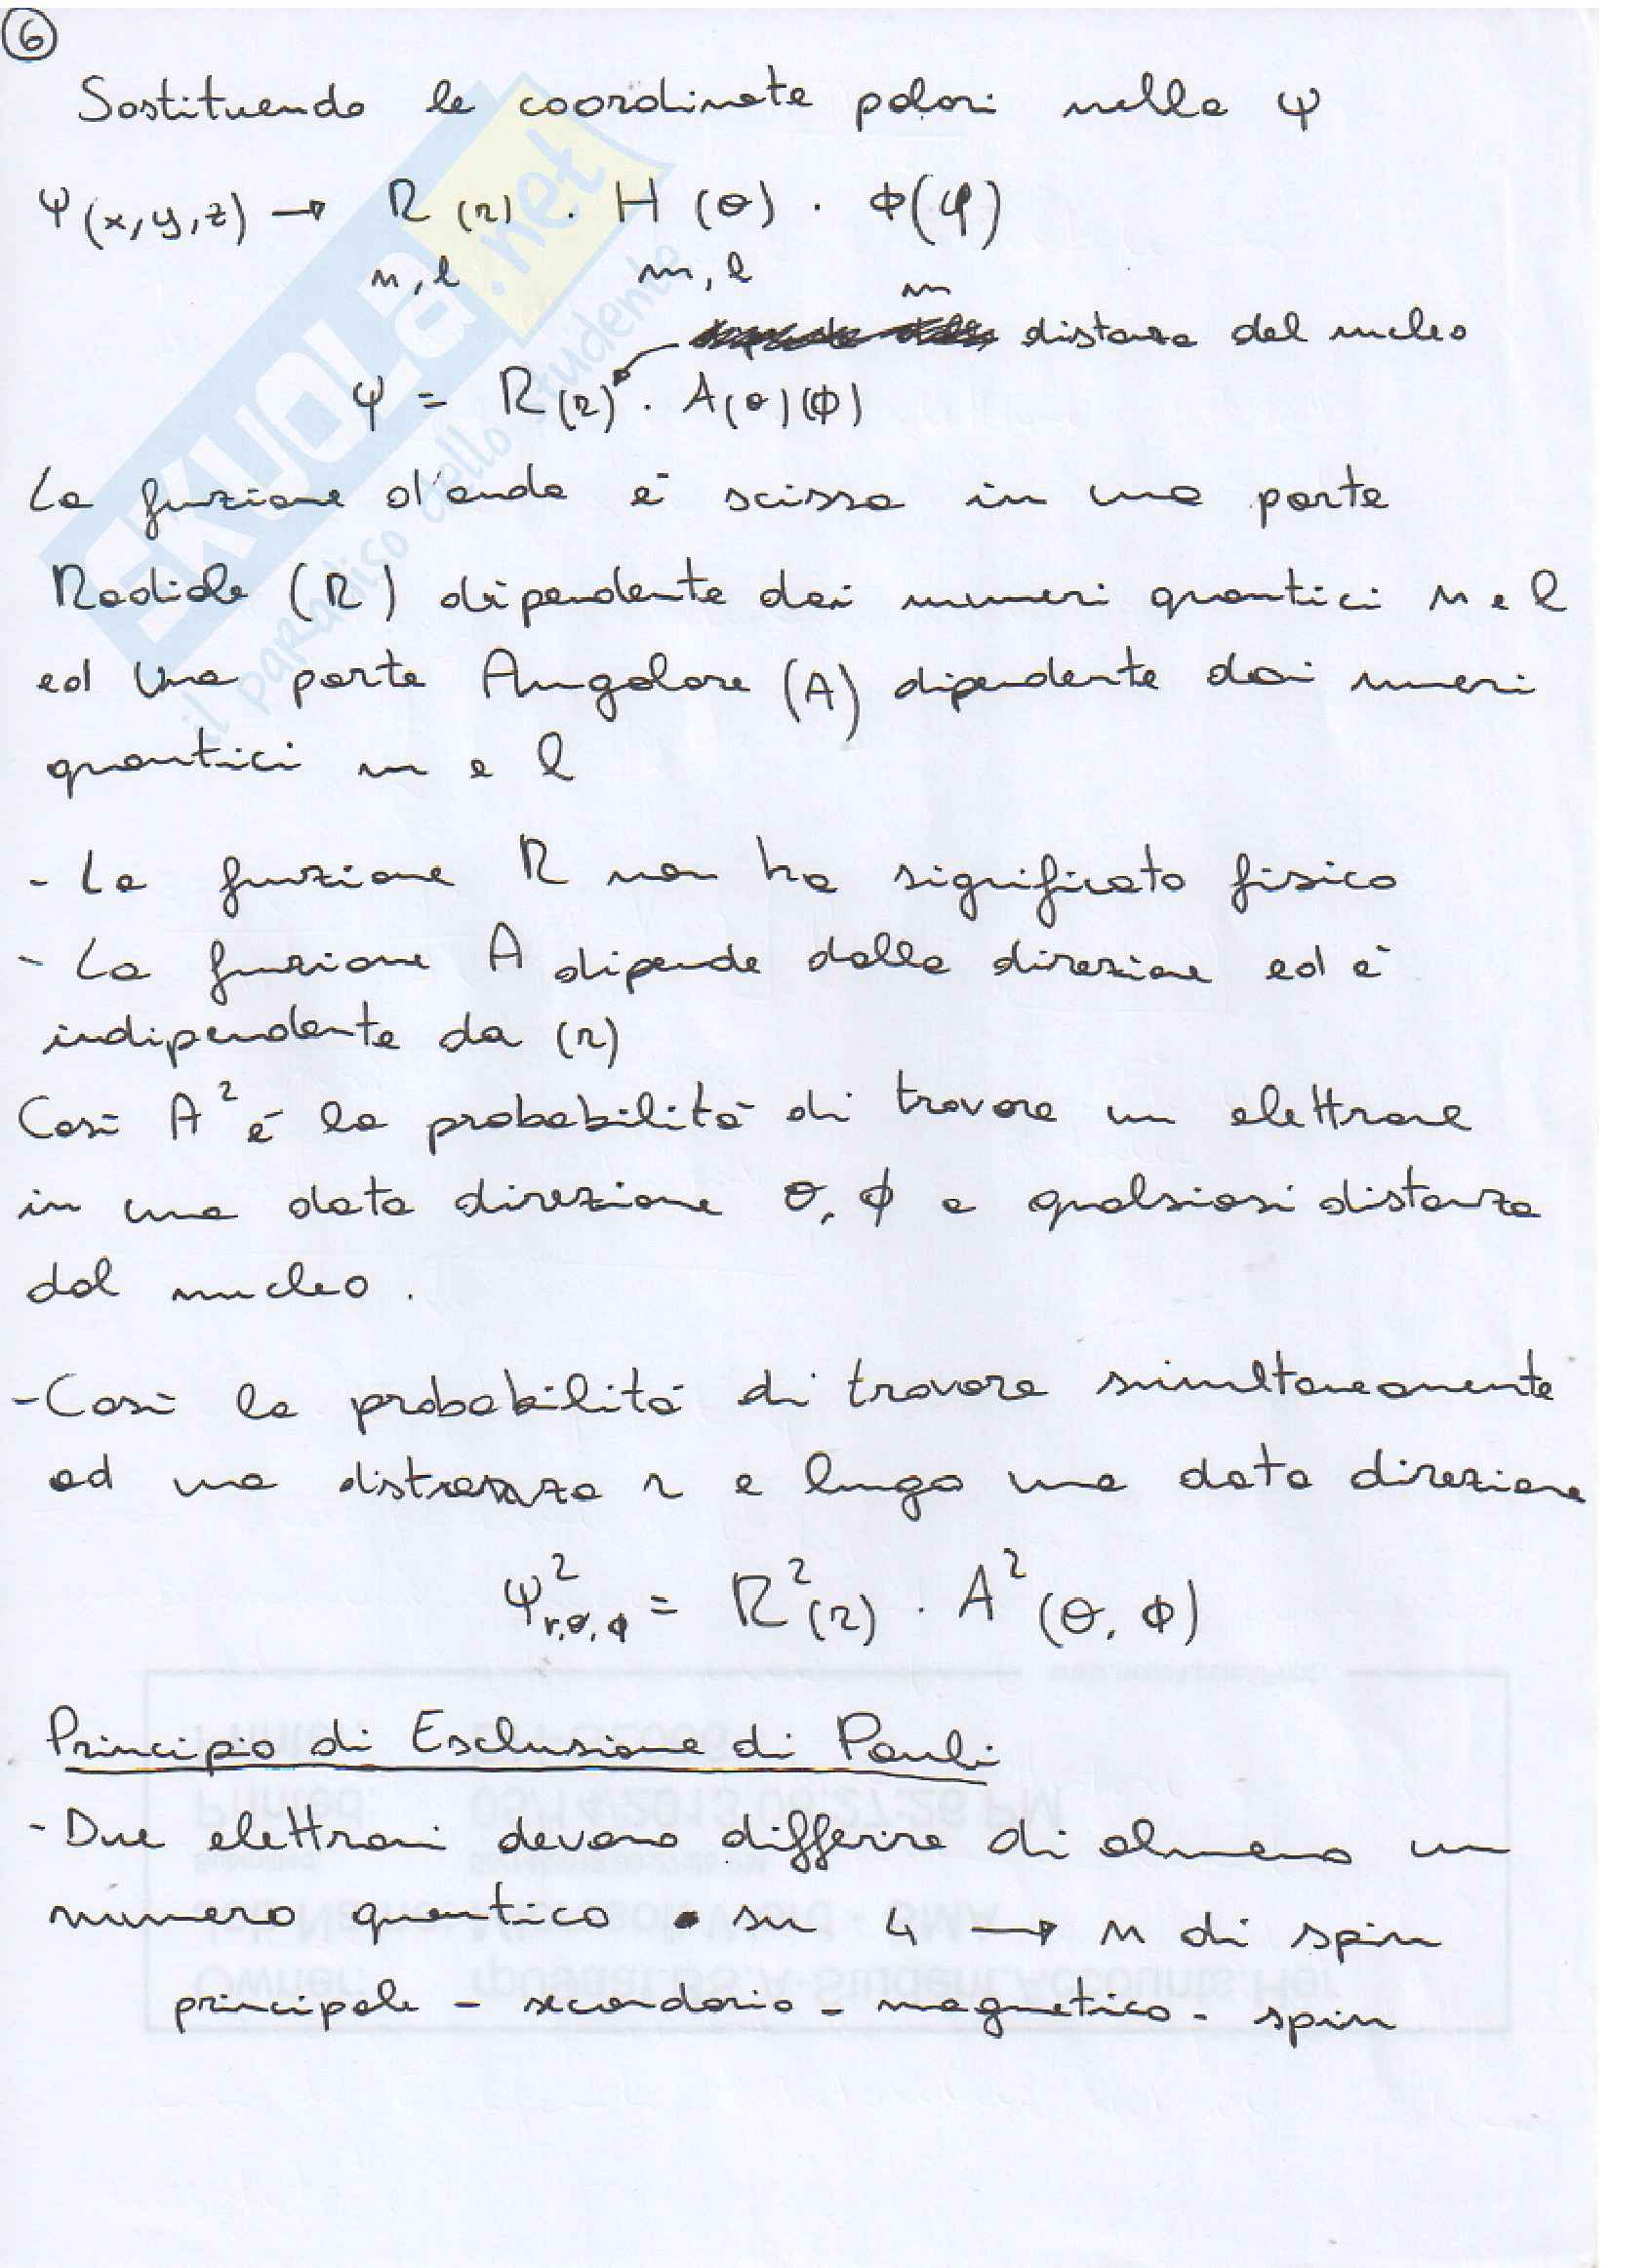 6
Sostituendo le coordinate polari nella ψ
ψ(x,y,z) → R(r) . H(θ) . Φ(φ)
n,l m,l m
distanza dal nucleo
ψ = R(r) . A(θ)(ϕ)
La funzione d'onda è scissa in una parte
Radiale (R) dipendente dai numeri quantici n e l
ed una parte Angolare (A) dipendente dai numeri
quantici m e l
- La funzione R non ha significato fisico
- La funzione A dipende dalla direzione ed è
indipendente da (r)
Così A² è la probabilità di trovare un elettrone
in una data direzione θ, ϕ a qualsiasi distanza
dal nucleo.
- Così la probabilità di trovare simultaneamente
ad una distanza r e lungo una data direzione
ψ²r,θ,ϕ = R²(r) . A²(θ, ϕ)
Principio di Esclusione di Pauli
- Due elettroni devono differire di almeno un
numero quantico su 4 → n di spin
principale - secondario - magnetico - spin
SKUOLA.net
il paradiso dello studente